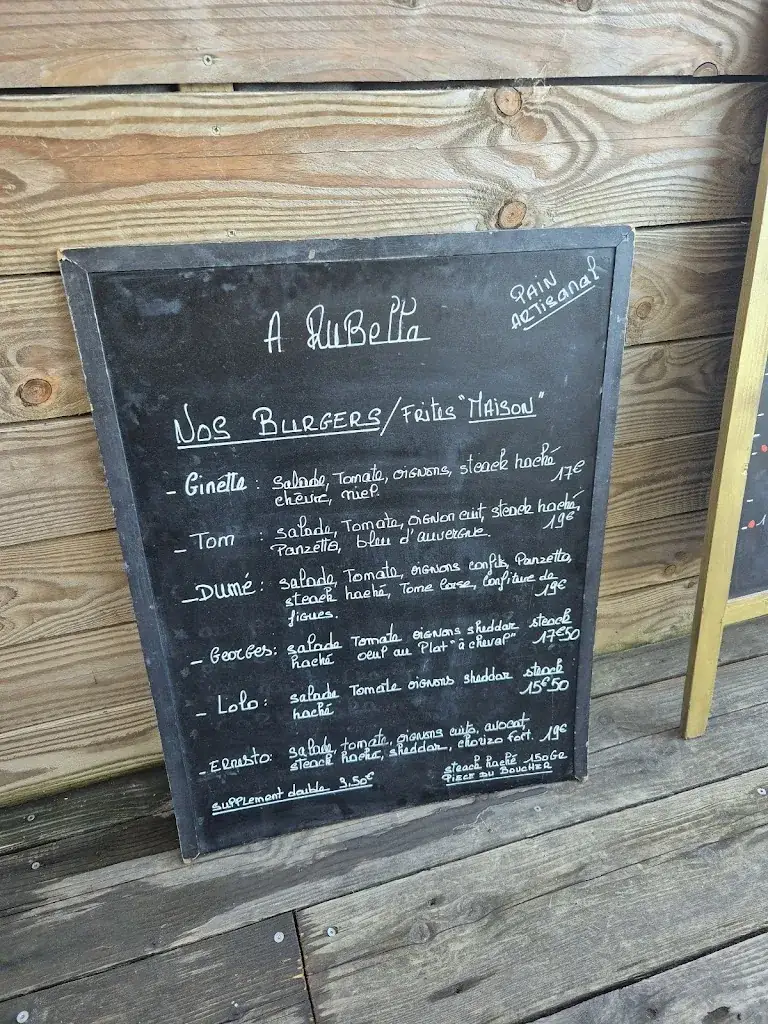 PAIN
ARTISANAL
A RUBELLA
NOS BURGERS/FRITES "MAISON"
- Ginette : salade, Tomate, oignons, steack haché
chèvre, miel. 17€
- Tom : salade, Tomate, oignon cuit, steack haché,
Panzetta, bleu d'auvergne. 19€
- DUMÉ : salade, Tomate, oignons confits, Panzetta,
steack haché, Tome Corse, Confiture de
figues. 19€
- Georges : salade Tomate oignons sheddar steack
haché oeuf au Plat "à cheval" 17€50
- Lolo : salade Tomate oignons sheddar steack
haché 15€50
- ERNESTO : salade, tomate, oignons cuits, avocat,
steack haché, sheddar, chorizo fort. 19€
steack haché 150GR
PIECE DU BOUCHER
SUPPLEMENT double 3,50€